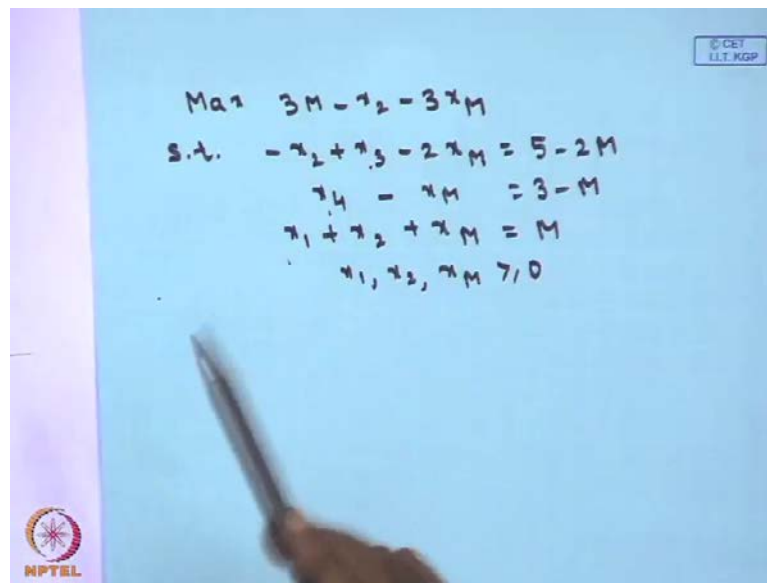 © CET
I.I.T. KGP
Max 3M - x₂ - 3x_M
s.t. - x₂ + x₃ - 2x_M = 5 - 2M
x₄ - x_M = 3 - M
x₁ + x₂ + x_M = M
x₁, x₂, x_M ≥ 0
NPTEL